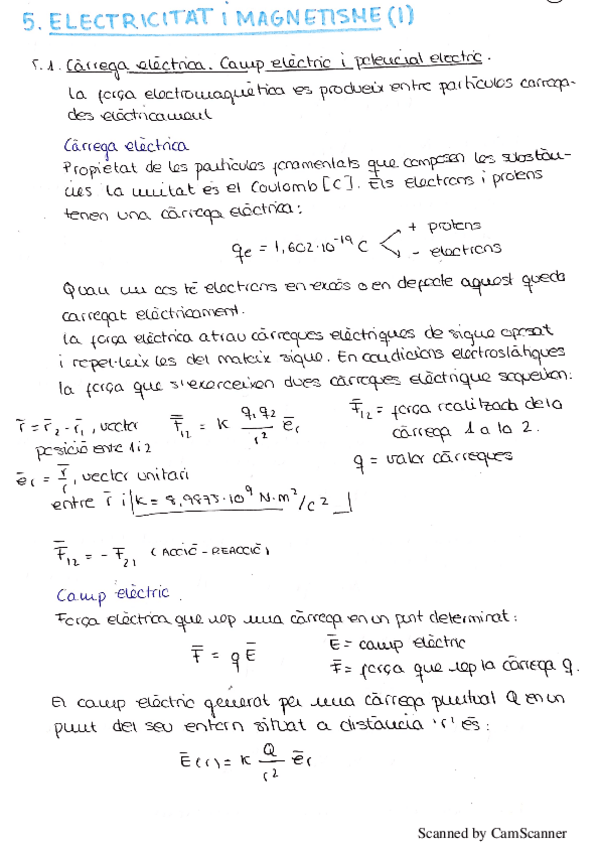 5. ELECTRICITAT i MAGNETISME (I)
5.1. Càrrega elèctrica. Camp elèctric i potencial electric.
La força electromagnètica es produeix entre partícules carrega-
des elèctricament
Càrrega elèctrica
Propietat de les partícules fonamentals que composen les substàn-
cies la unitat és el Coulomb [C]. Els electrons i protens
tenen una càrrega elèctrica:
qe = 1,602·10⁻¹⁹ C
+ protens
- electrons
Quan un cos té electrons en excés o en defecte aquest queda
carregat elèctricament.
La força elèctrica atrau càrregues elèctriques de signe oposat
i repel·leix les del mateix signe. En condicions electrostàtiques
la força que s'exerceixen dues càrregues elèctrique segueixen:
r̄ = r̄₂ - r̄₁, vector
posició entre 1 i 2
F̄₁₂ = K q₁q₂/r² ēr
F̄₁₂ = força realitzada de la
càrrega 1 a la 2.
q = valor càrregues
ēr = r̄/r, vector unitari
entre r̄ i K = 8,9875·10⁹ N·m²/C²
F̄₁₂ = - F₂₁ (ACCIÓ-REACCIÓ)
Camp elèctric.
Força elèctrica que rep una càrrega en un punt determinat:
F̄ = q Ē
Ē = camp elèctric
F̄ = força que rep la càrrega q.
El camp elèctric generat per una càrrega puntual Q en un
punt del seu entorn situat a distància 'r' és:
Ē(r) = K Q/r² ēr
Scanned by CamScanner